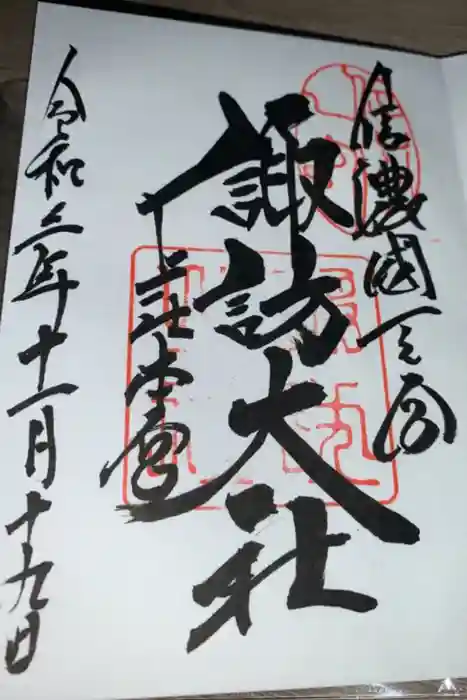 信濃國一之宮
諏訪大社
上社本宮
令和二年十一月十九日